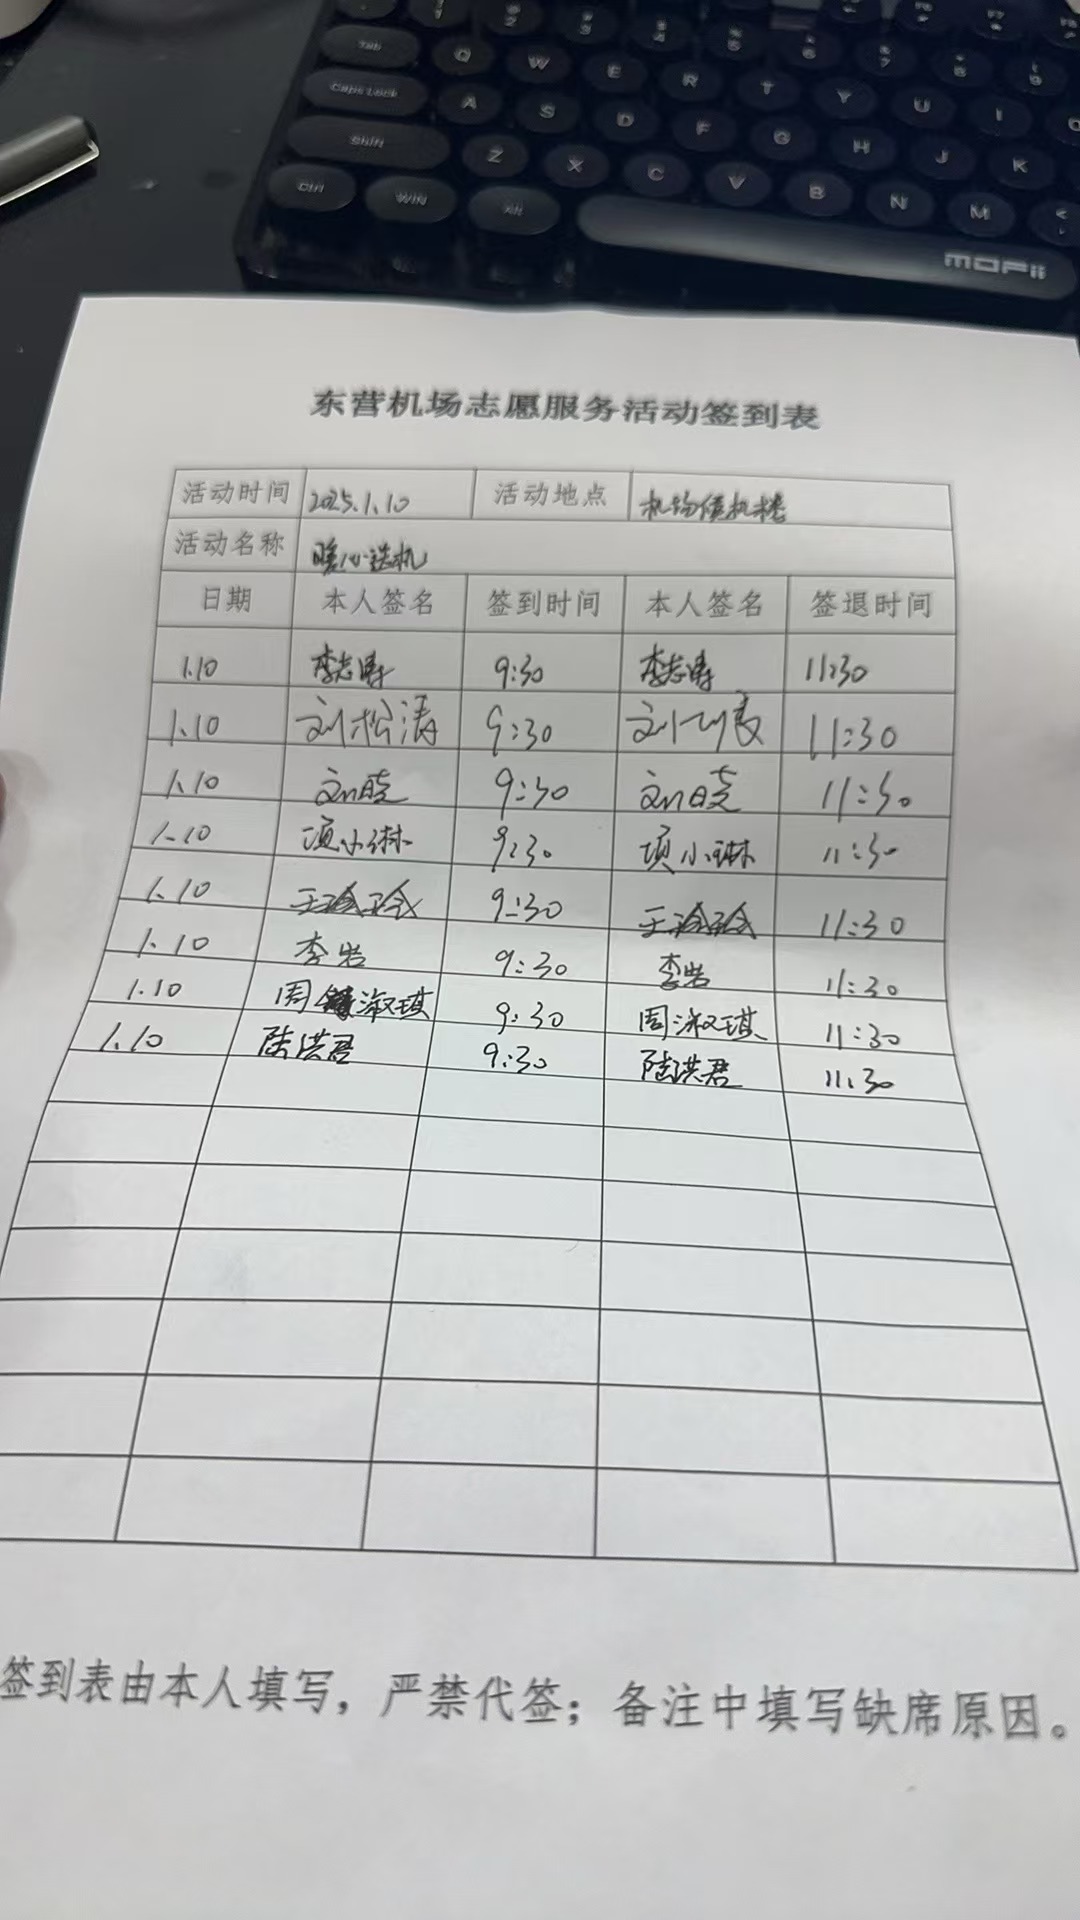 Tab Q W E R T Y U I
Caps Lock A S D F G H J K
Shift Z X C V B N M <
Ctrl WIN Alt
MOFii
东营机场志愿服务活动签到表
活动时间 2025.1.10 活动地点 机场候机楼
活动名称 暖心送机
日期 本人签名 签到时间 本人签名 签退时间
1.10 李志涛 9:30 李志涛 11:30
1.10 刘松涛 9:30 刘 11:30
1.10 刘晓 9:30 刘晓 11:30
1.10 项小琳 9:30 项小琳 11:30
1.10 王玲玲 9:30 王玲玲 11:30
1.10 李岩 9:30 李岩 11:30
1.10 周淑琪 9:30 周淑琪 11:30
1.10 陆洪君 9:30 陆洪君 11:30
签到表由本人填写，严禁代签；备注中填写缺席原因。